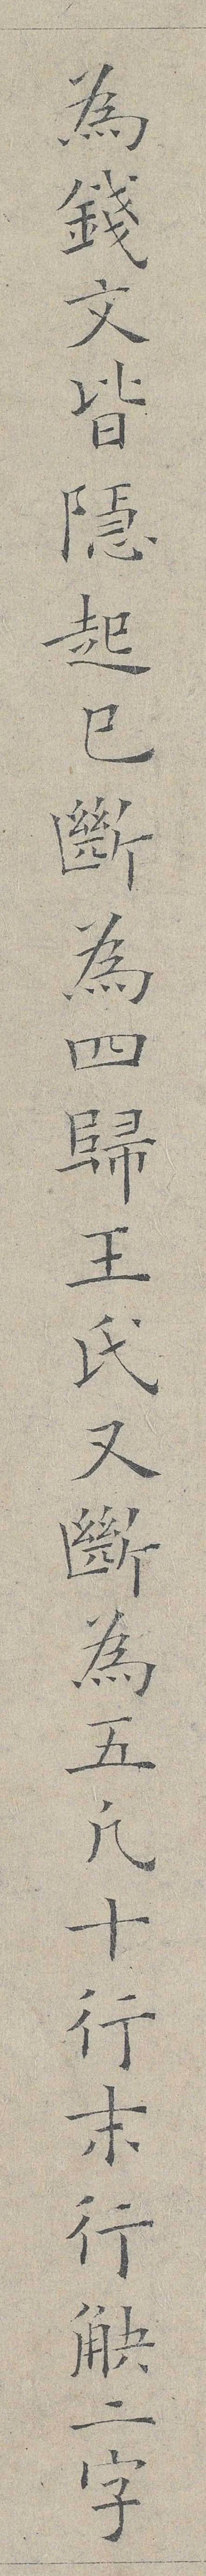 為錢文皆隱起已斷為四歸王氏又斷為五凡十行末行觖二字